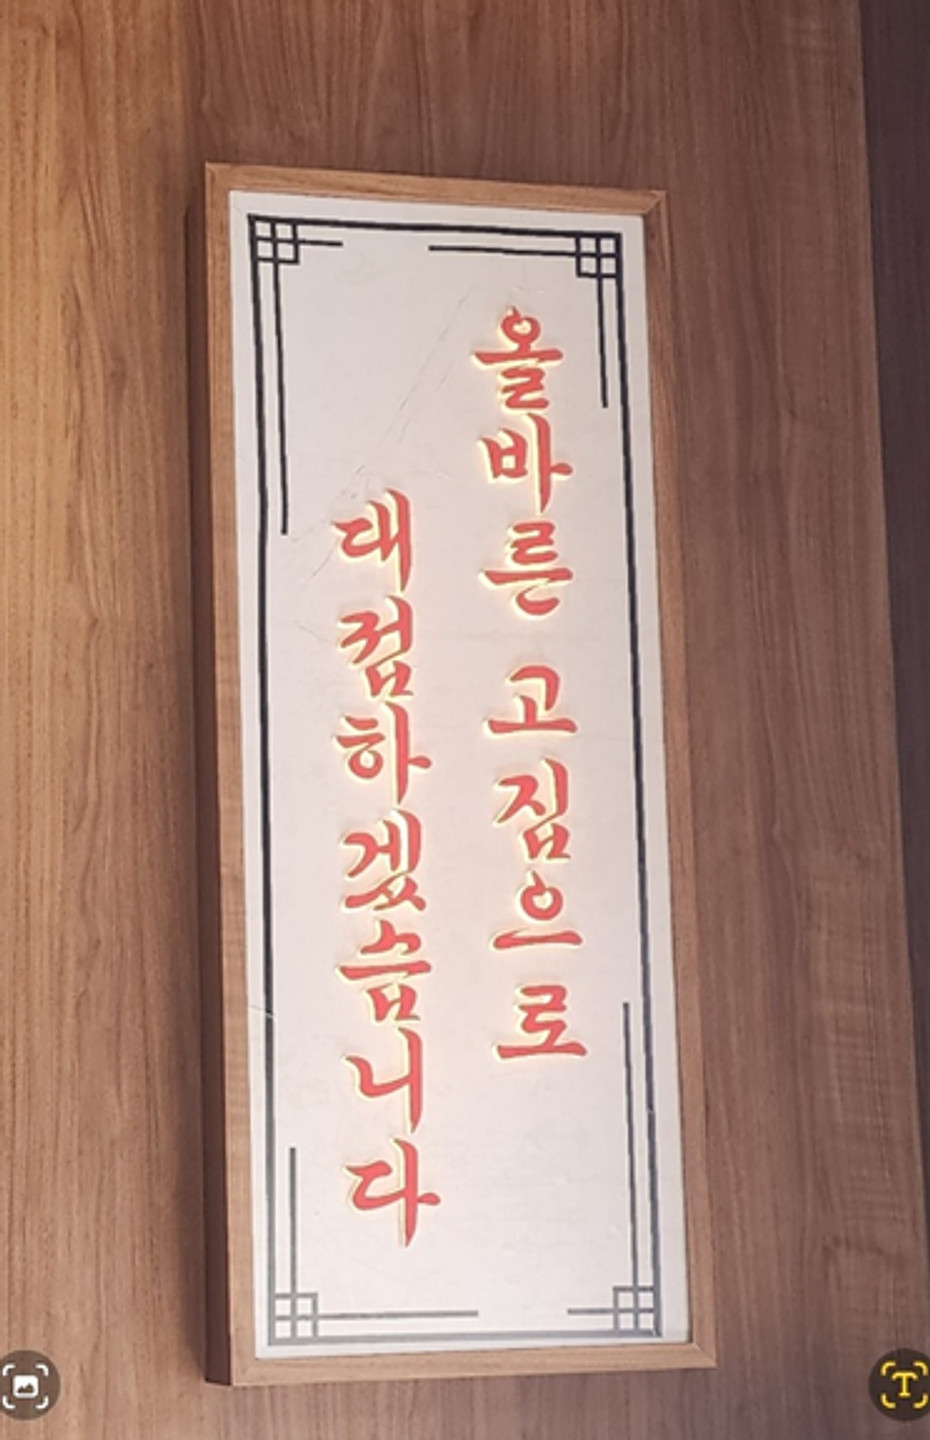 올바른 고집으로
대접하겠습니다